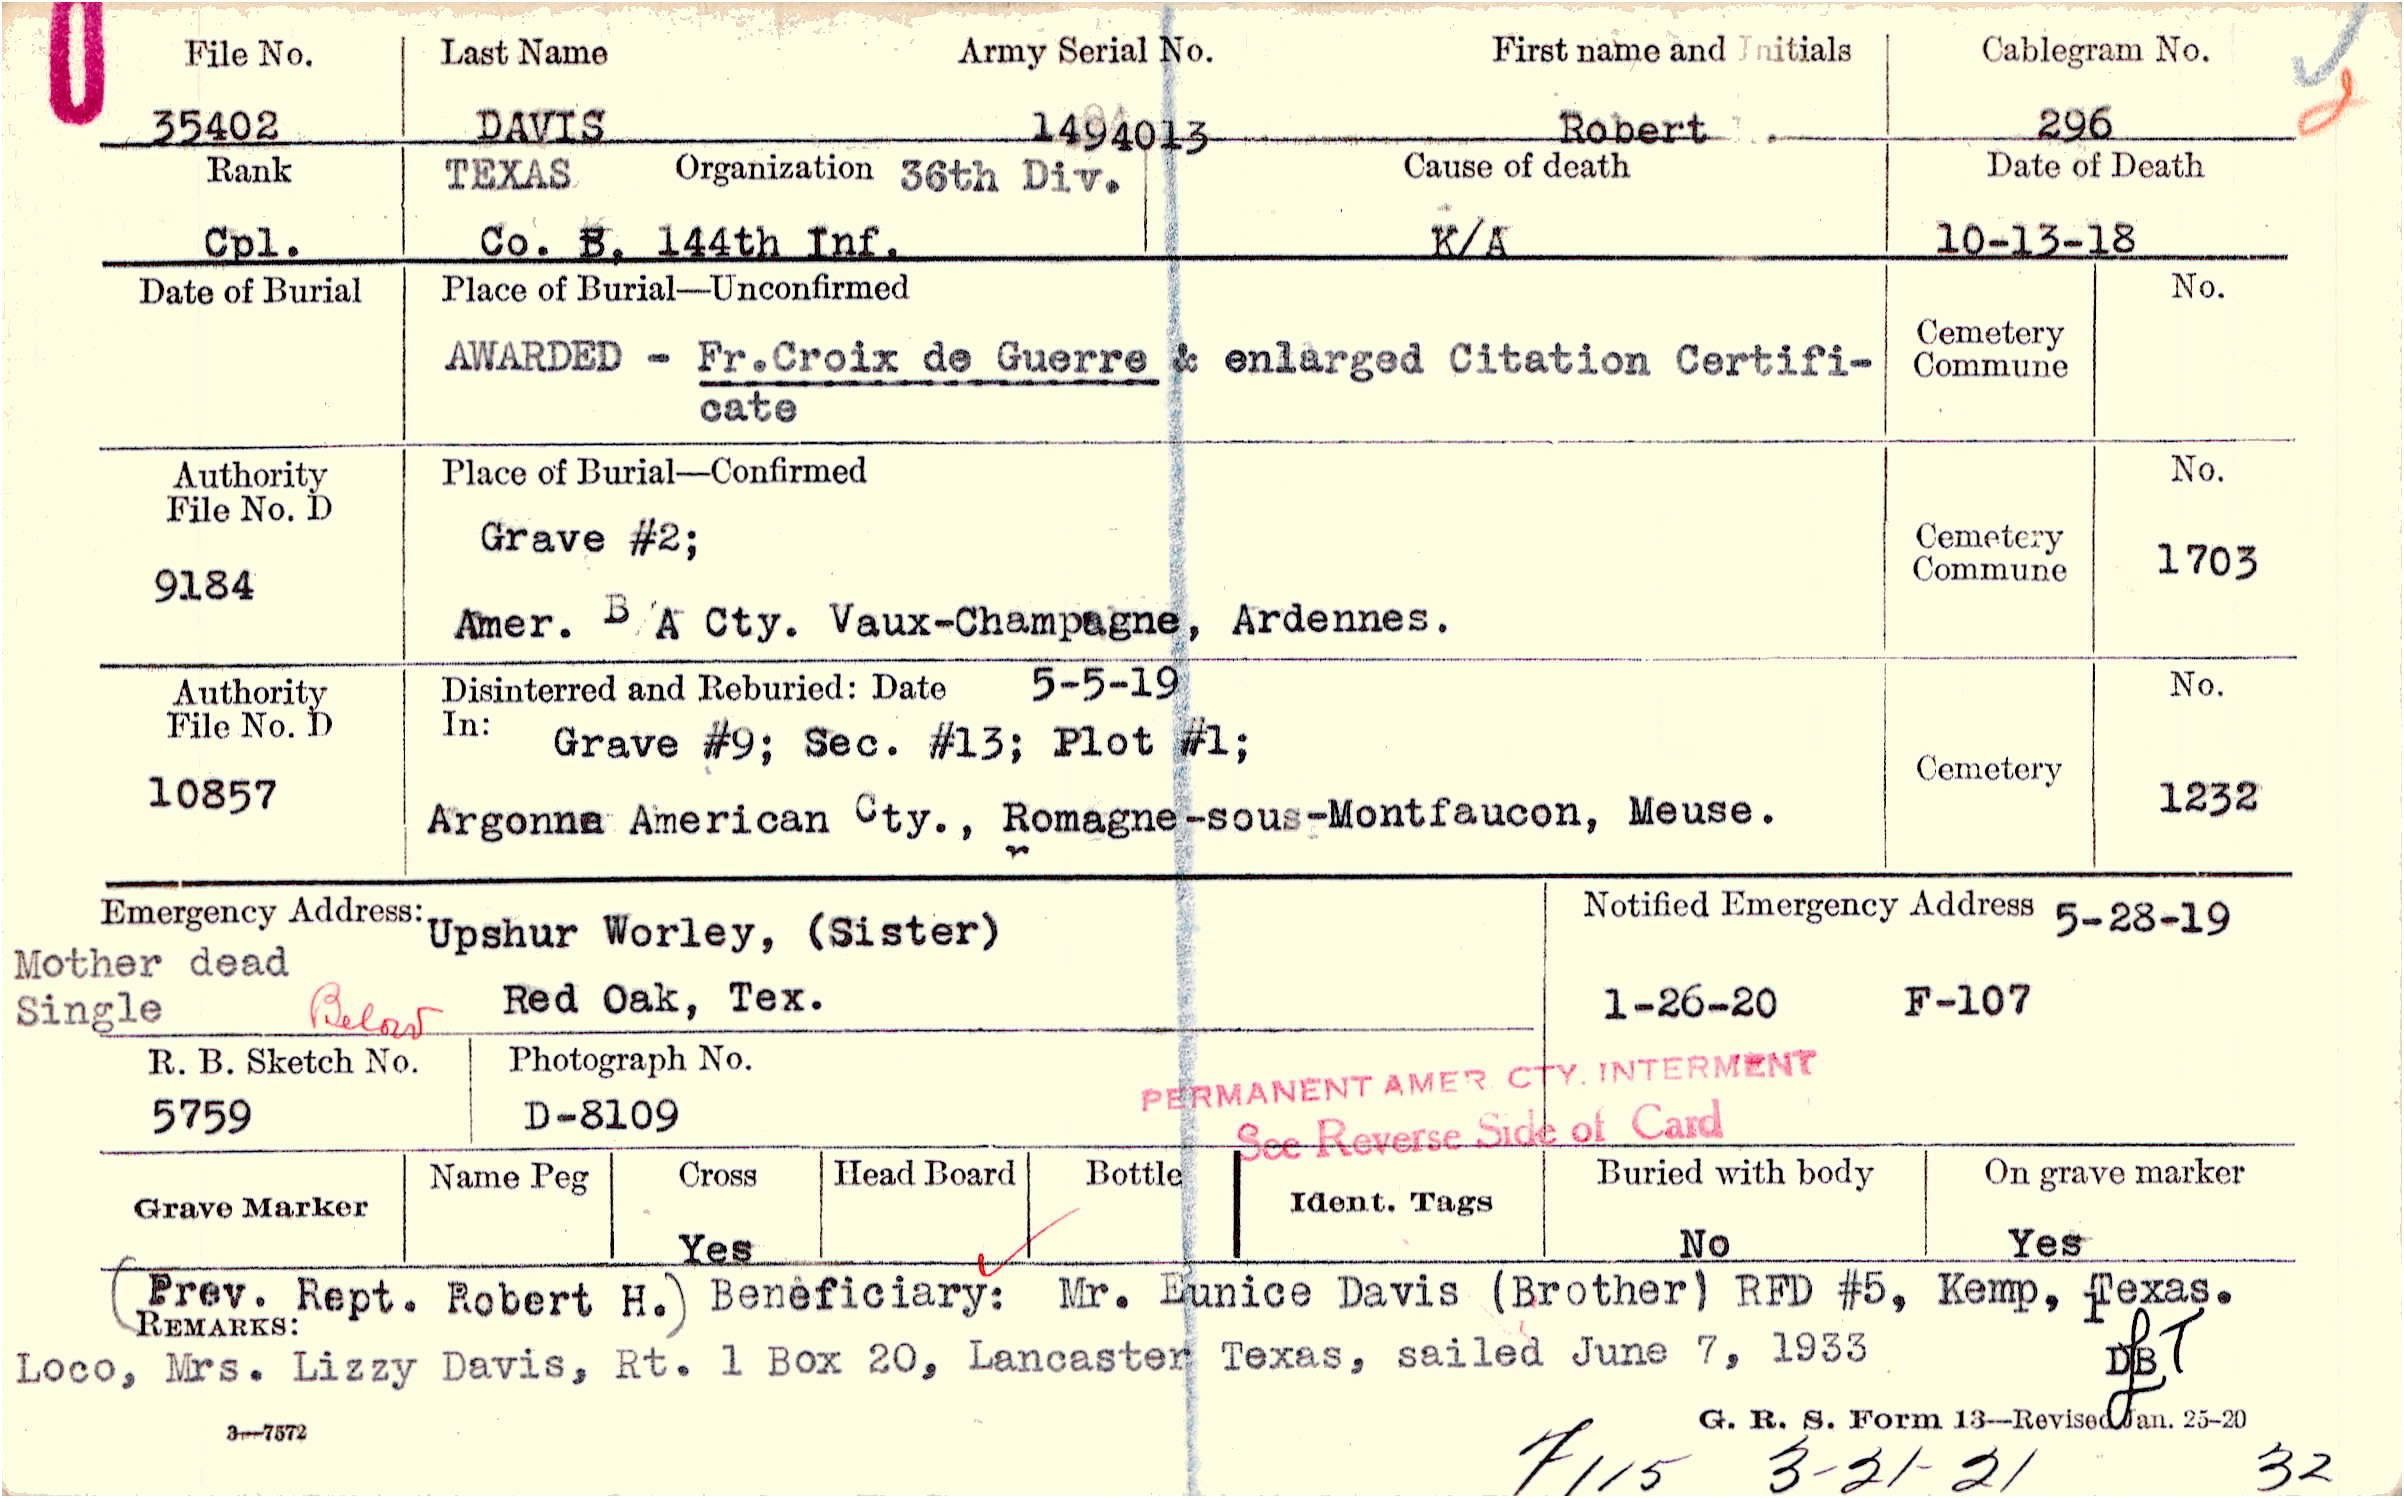 File No. Last Name Army Serial No. First name and Initials Cablegram No.
35402 DAVIS 1494013 Robert 296
Rank TEXAS Organization 36th Div. Cause of death Date of Death
Cpl. Co. B, 144th Inf. K/A 10-13-18
Date of Burial Place of Burial—Unconfirmed No.
Cemetery
AWARDED - Fr.Croix de Guerre & enlarged Citation Certifi- Commune
cate
Authority Place of Burial—Confirmed No.
File No. D
Grave #2; Cemetery
9184 Commune 1703
Amer. B A Cty. Vaux-Champagne, Ardennes.
Authority Disinterred and Reburied: Date 5-5-19 No.
File No. D In: Grave #9; Sec. #13; Plot #1;
10857 Cemetery 1232
Argonne American Cty., Romagne-sous-Montfaucon, Meuse.
Emergency Address: Upshur Worley, (Sister) Notified Emergency Address 5-28-19
Mother dead
Single Below Red Oak, Tex. 1-26-20 F-107
R. B. Sketch No. Photograph No.
PERMANENT AMER. CTY. INTERMENT
5759 D-8109 See Reverse Side of Card
Grave Marker Name Peg Cross Head Board Bottle Ident. Tags Buried with body On grave marker
Yes No Yes
(Prev. Rept. Robert H.) Beneficiary: Mr. Eunice Davis (Brother) RFD #5, Kemp, Texas.
REMARKS:
Loco, Mrs. Lizzy Davis, Rt. 1 Box 20, Lancaster Texas, sailed June 7, 1933 DB
3—7572 G. R. S. Form 13—Revised Jan. 25-20
7115 3-21-21 32